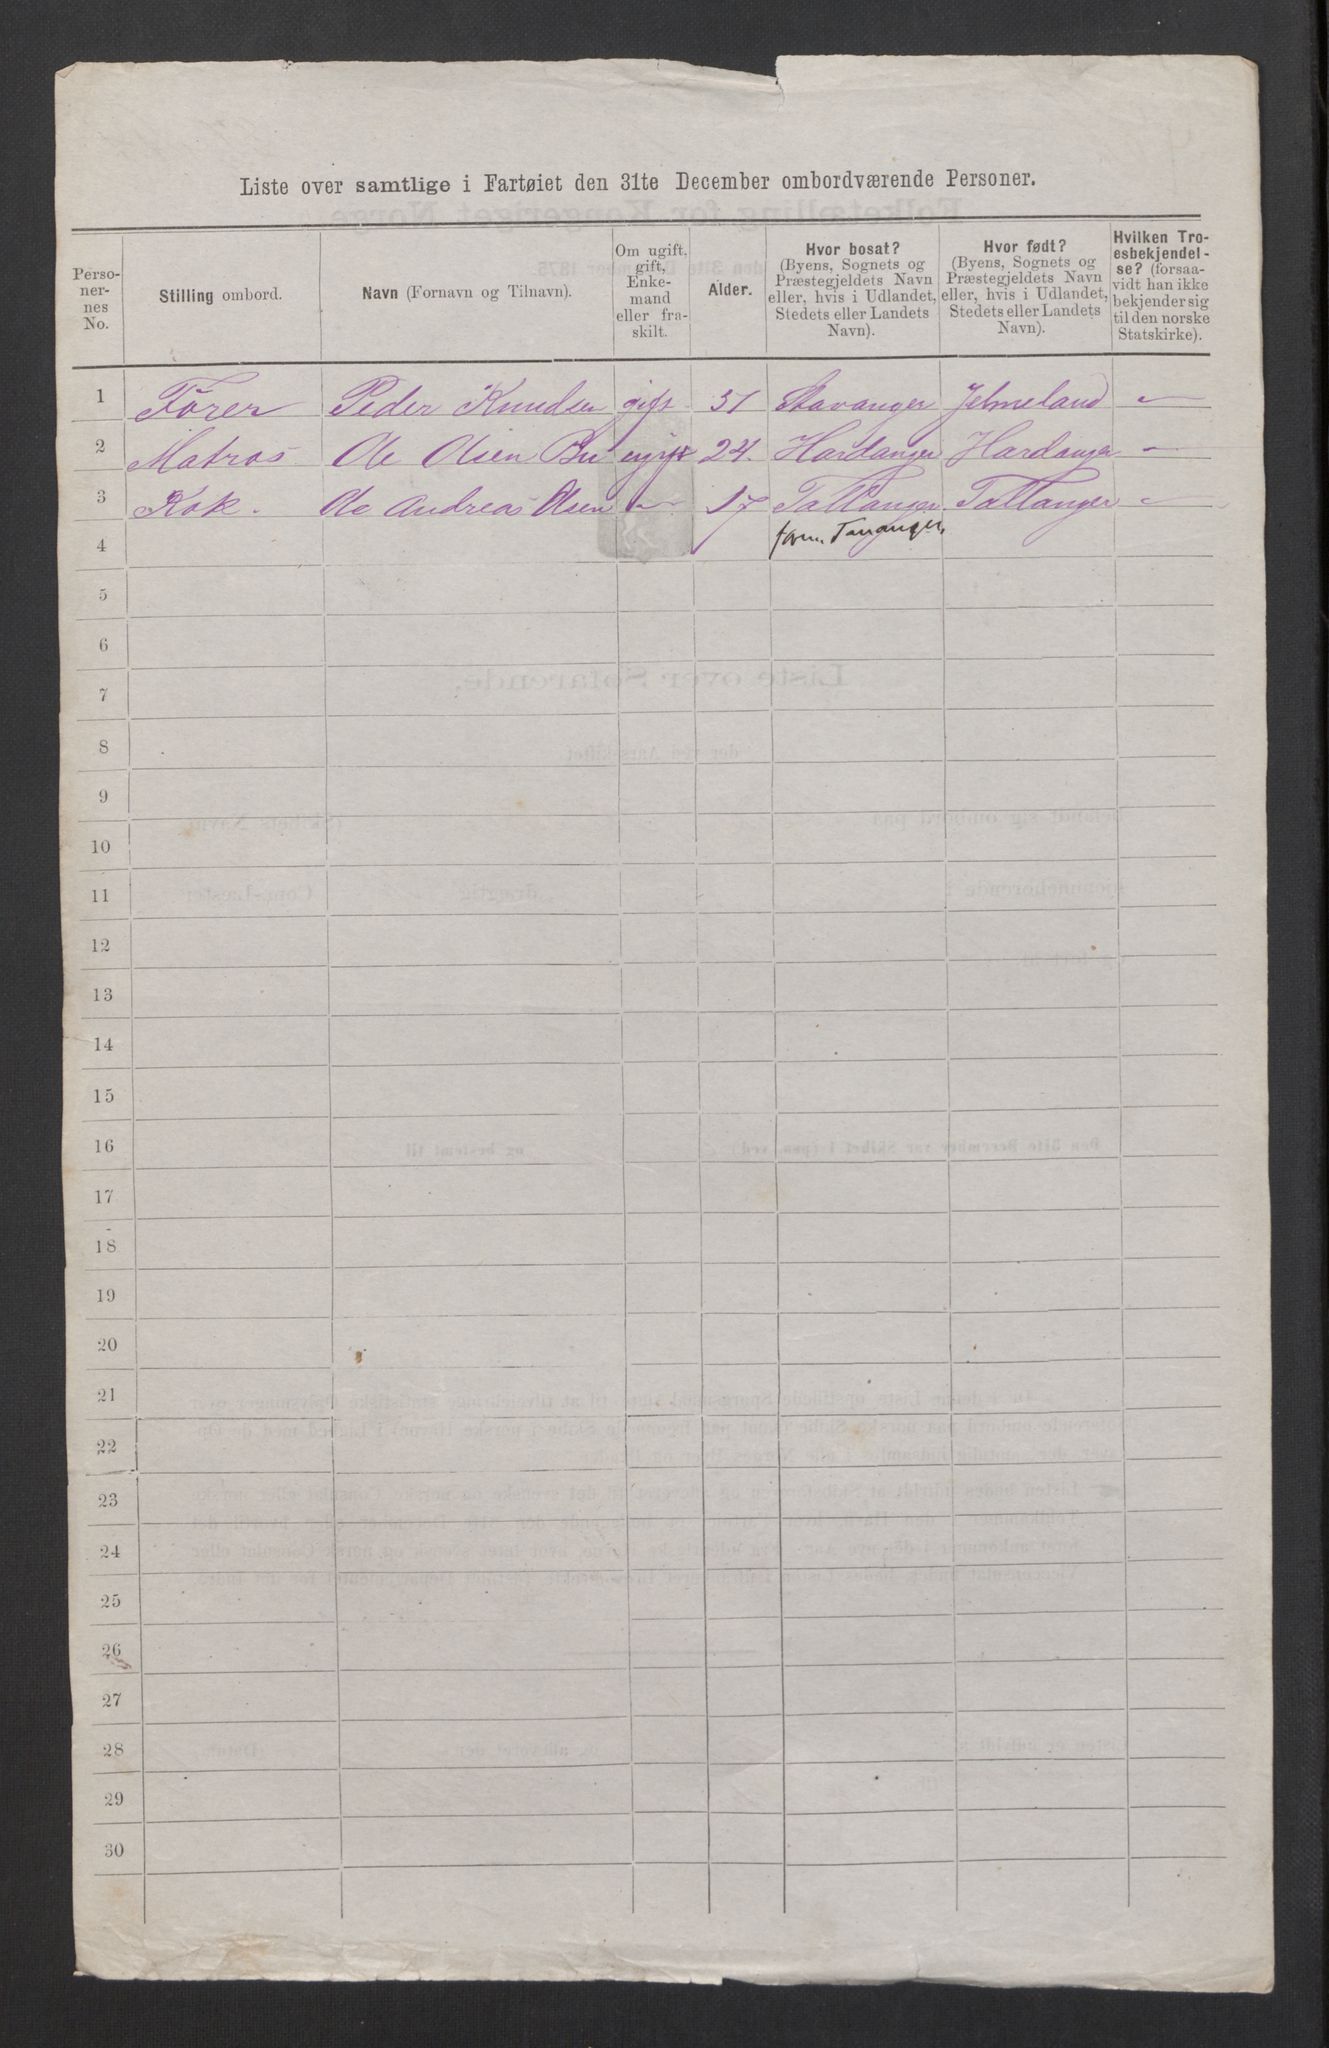 Liste over samtlige i Fartøiet den 31te December ombordværende Personer.
Perso-
nernes
No.
Stilling ombord.
Navn (Fornavn og Tilnavn).
Om ugift,
gift,
Enke-
mand
eller fra-
skilt.
Alder.
Hvor bosat?
(Byens, Sognets og
Præstegjeldets Navn
eller, hvis i Udlandet,
Stedets eller Landets
Navn).
Hvor født?
(Byens, Sognets og
Præstegjeldets Navn
eller, hvis i Udlandet,
Stedets eller Landets
Navn).
Hvilken Tro-
esbekjendel-
se? (forsaa-
vidt han ikke
bekjender sig
til den norske
Statskirke).
1 Förer Peder Knudsen gift 31 Stavanger Jelmeland -
2 Matros Ole Olsen Bu ugift 24. Hardanger Hardanger -
3 Kok. Ole Andreas Olsen - 17 Tattanger Tattanger -
Tananger
4
5
6
7
8
9
10
11
12
13
14
15
16
17
18
19
20
21
22
23
24
25
26
27
28
29
30